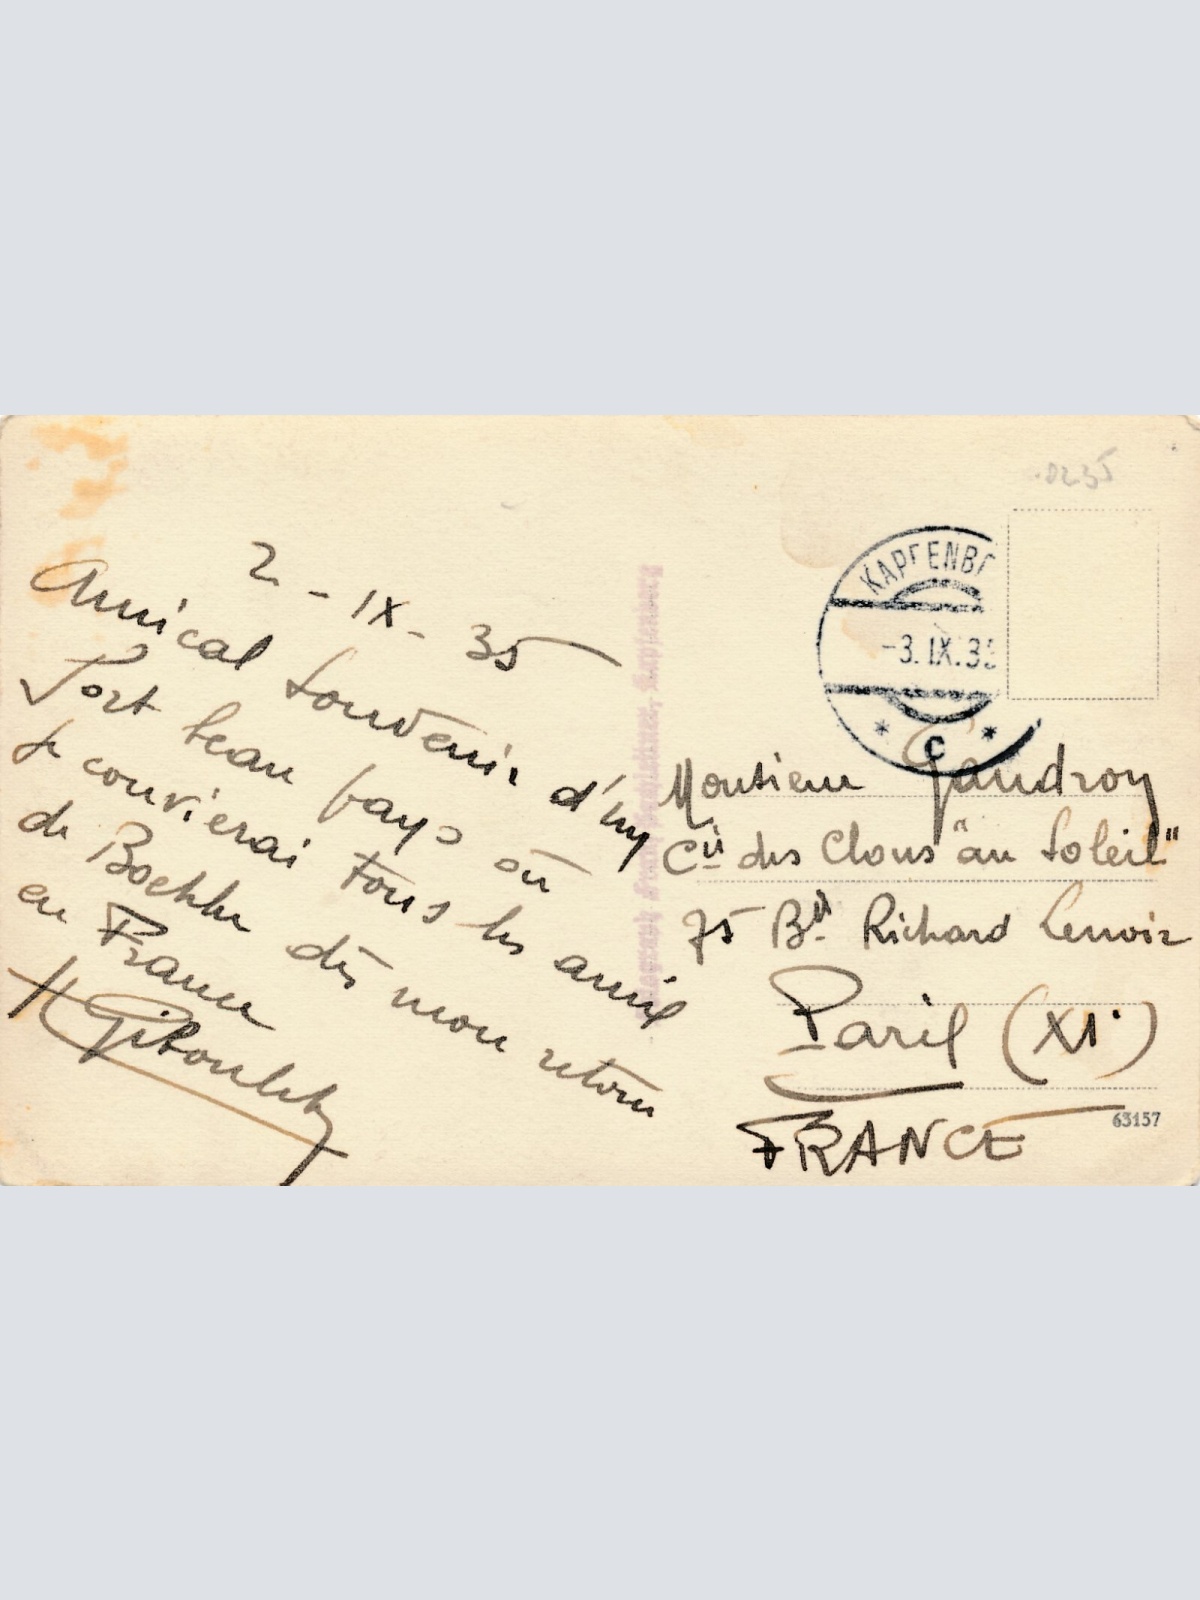 2 - IX - 35
Amical Souvenir d'un
fort beau pays où
je convierai tous les amis
de Boehler dès mon retour
en France
.0235
KAPFENBE
-3.IX.35
* C *
Monsieur Gaudroy
Cie des Clous "au Soleil"
75 Bd Richard Lenoir
Paris (XIe)
FRANCE
63157